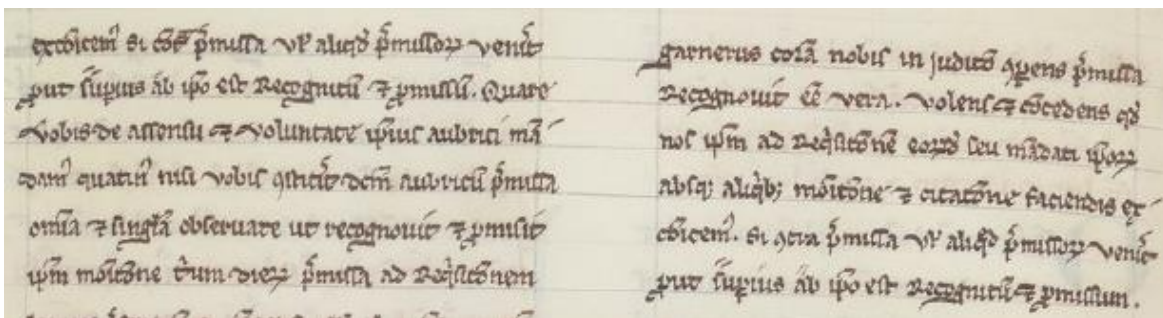 excōicem⁹ si p̄missa vl̓ aliq̄d p̄missoꝝ venīt
ꝓut sup̄ius ab ip̄o est Recognitū ⁊ ꝓmissū. Quare
vobis de assensu ⁊ voluntate ip̄ius aubrici mā
dam⁹ quatin⁹ nisi vobis ꝯstit̄it dc̄m aubricū p̄missa
om̄ia ⁊ singl̄a observare ut recognovit ⁊ ꝓmisit
ip̄m moītōne t̄um dieꝝ p̄missa ad Req̄sitōnem
garnerus corā nobis in judicō ꝯpens p̄missa
Recognovit eē vera. volens ⁊ cōcedens qd̄
nos ip̄m ad Req̄sitōnē seu mādati ip̄oꝝ
absq; aliq̄b; moītōne ⁊ citatōne faciendis ex
cōicem⁹. Si ꝯtra p̄missa vl̓ aliq̄d p̄missoꝝ venīt
ꝓut sup̄ius ab ip̄o est Recognitū ⁊ ꝓmissum.